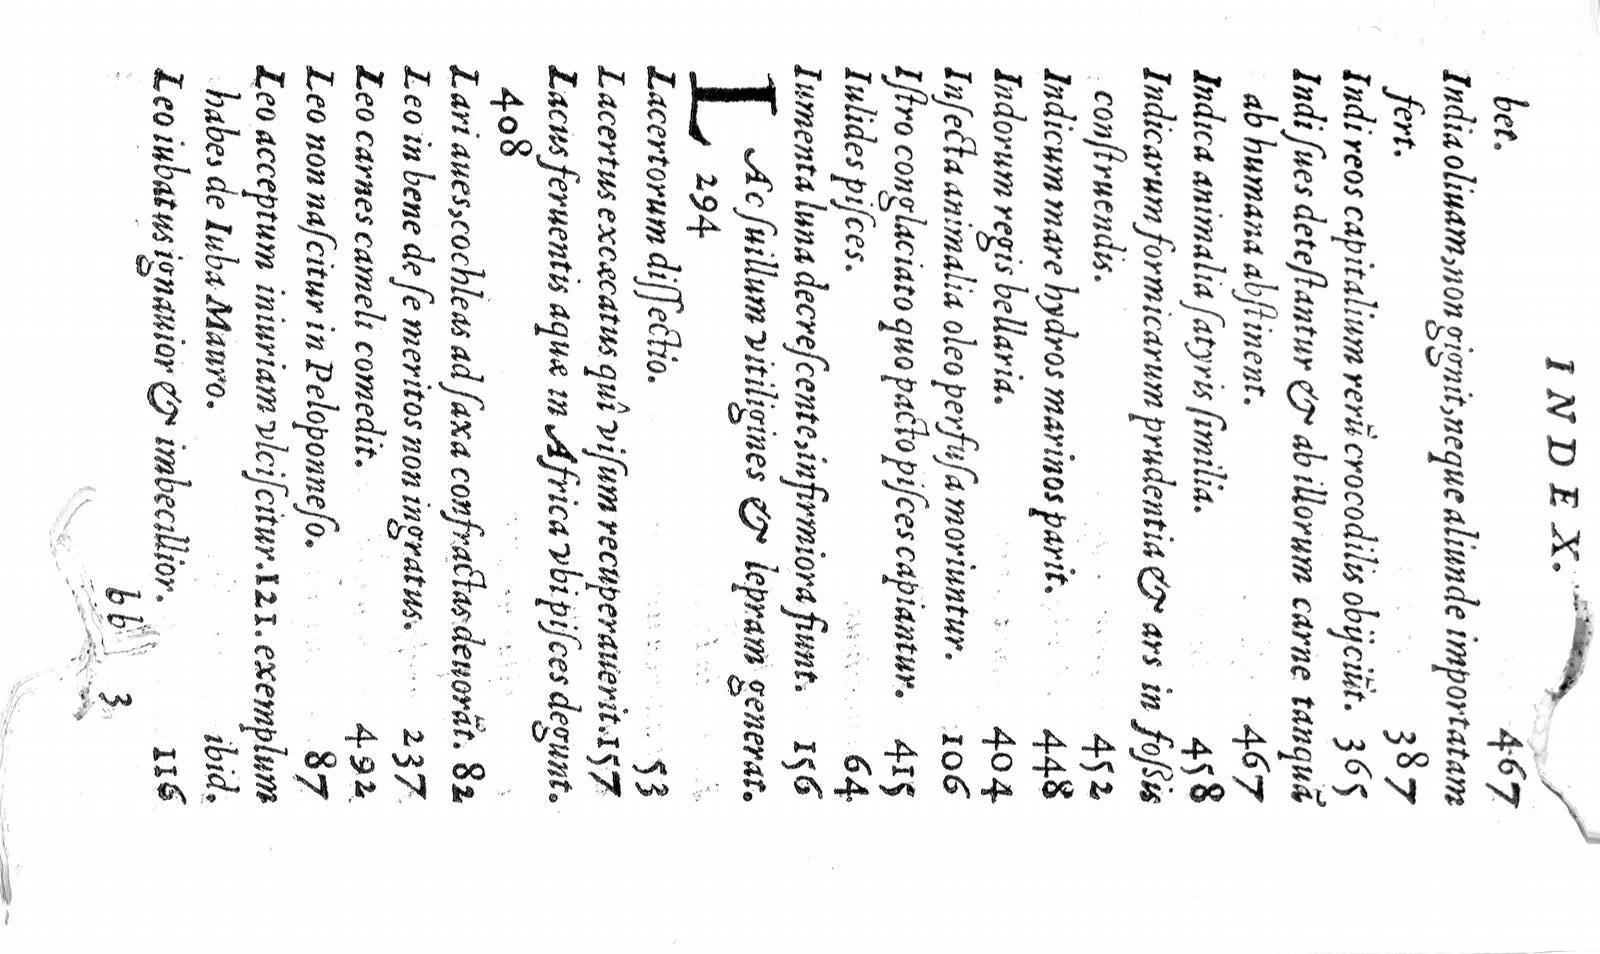 INDEX.
bet. 467
India oliuam, non gignit, neque aliunde importatam
fert. 387
Indi reos capitalium rerũ crocodilis obijciũt. 365
Indi ſues deteſtantur & ab illorum carne tanquã
ab humana abſtinent. 467
Indica animalia ſatyris ſimilia. 458
Indicarum formicarum prudentia & ars in foſsis
conſtruendis. 452
Indicum mare hydros marinos parit. 448
Indorum regis bellaria. 404
Inſecta animalia oleo perfuſa moriuntur. 106
Iſtro conglaciato quo pacto piſces capiantur. 415
Iulides piſces. 64
Iumenta luna decreſcente, infirmiora fiunt. 156
LAc ſuillum vitiligines & lepram generat.
294
Lacertorum diſſectio. 53
Lacertus excæcatus quî viſum recuperauerit. 157
Lacus feruentis aquæ in Africa vbi piſces degunt.
408
Lari aues, cochleas ad ſaxa confractas deuorãt. 82
Leo in bene de ſe meritos non ingratus. 237
Leo carnes cameli comedit. 492
Leo non naſcitur in Peloponneſo. 87
Leo acceptum iniuriam vlciſcitur. 121. exemplum
habes de Iuba Mauro. ibid.
Leo iubatus ignauior & imbecillior. 116
bb 3